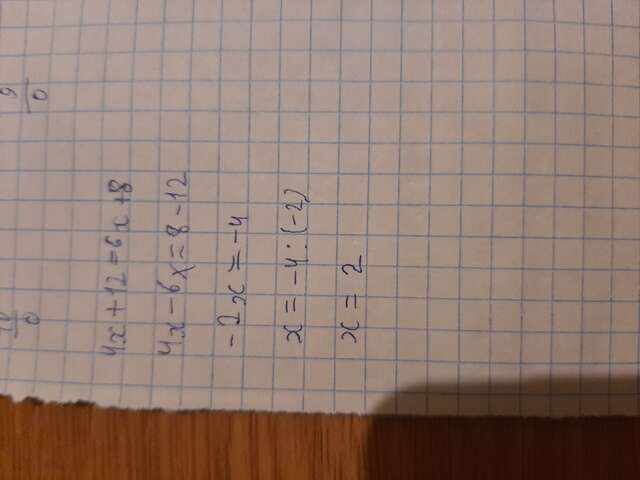 9
0
0
4x + 12 = 6x + 8
4x - 6x = 8 - 12
-2x = -4
x = -4 : (-2)
x = 2